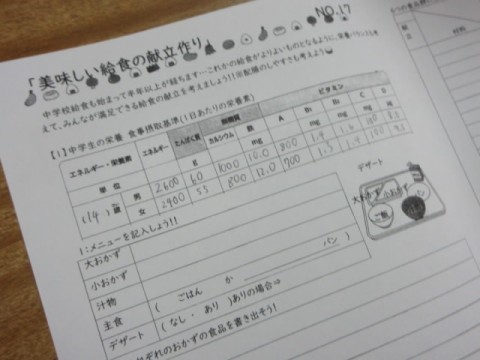 NO.17
「美味しい給食の献立作り」
中学校給食も始まって半年以上が経ちます…これからの給食がよりよいものとなるように、栄養バランスも考
えて、みんなが満足できる給食の献立を考えましょう!!※配膳のしやすさも考えよう
【1】中学生の栄養 食事摂取基準(1日あたりの栄養素)
エネルギー・栄養素 エネルギー たんぱく質 無機質 ビタミン
カルシウム 鉄 A B1 B2 C D
単位 g mg
(14)歳 男 2600 60 1000 10.0 800 1.4 1.6 100
女 2400 55 800 12.0 700 1.3 1.4 100
1:メニューを記入しよう!!
大おかず
小おかず
汁物
主食 ( ごはん か パン )
デザート ( なし ・ あり )ありの場合⇒
ぞれのおかずの食品を書き出そう!
デザート
大おかず
小おかず
パン
ご飯
材料